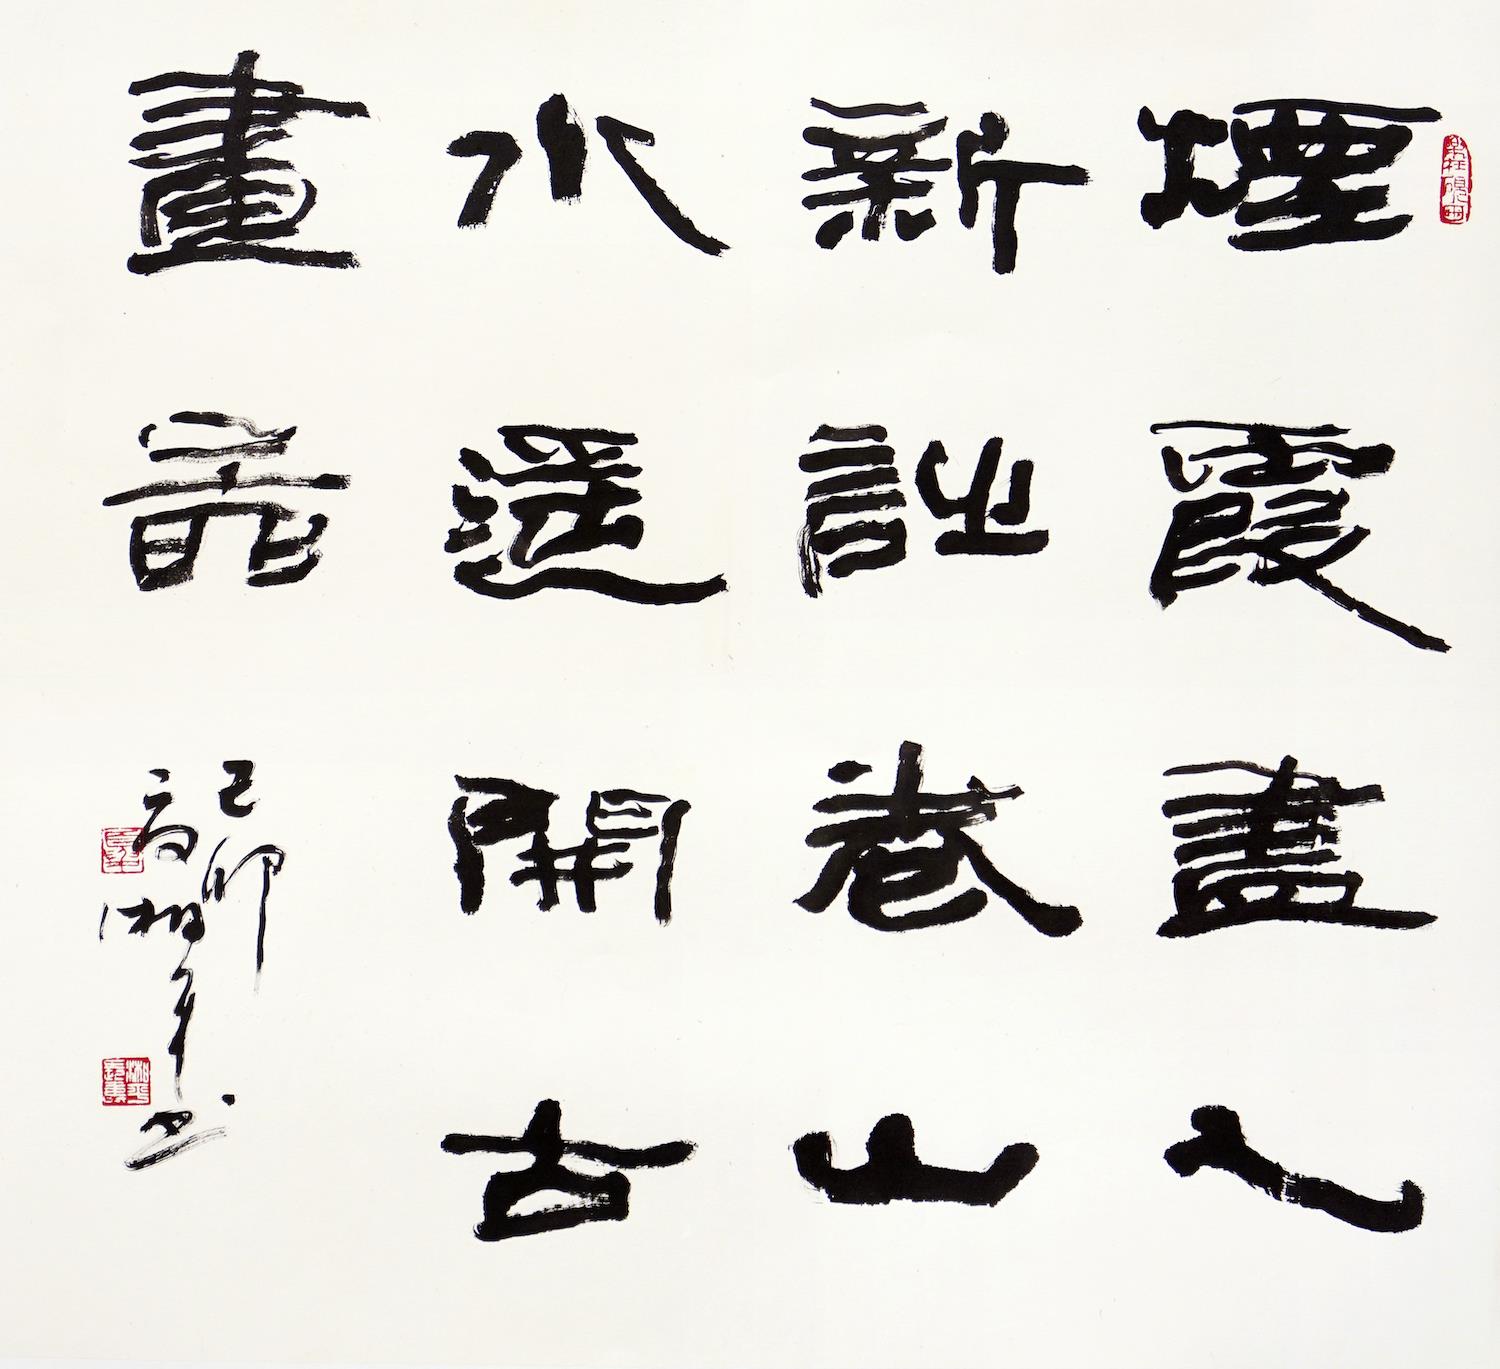 煙霞盡入
新詩卷山
水遥開古
畫
己卯
高湘平书